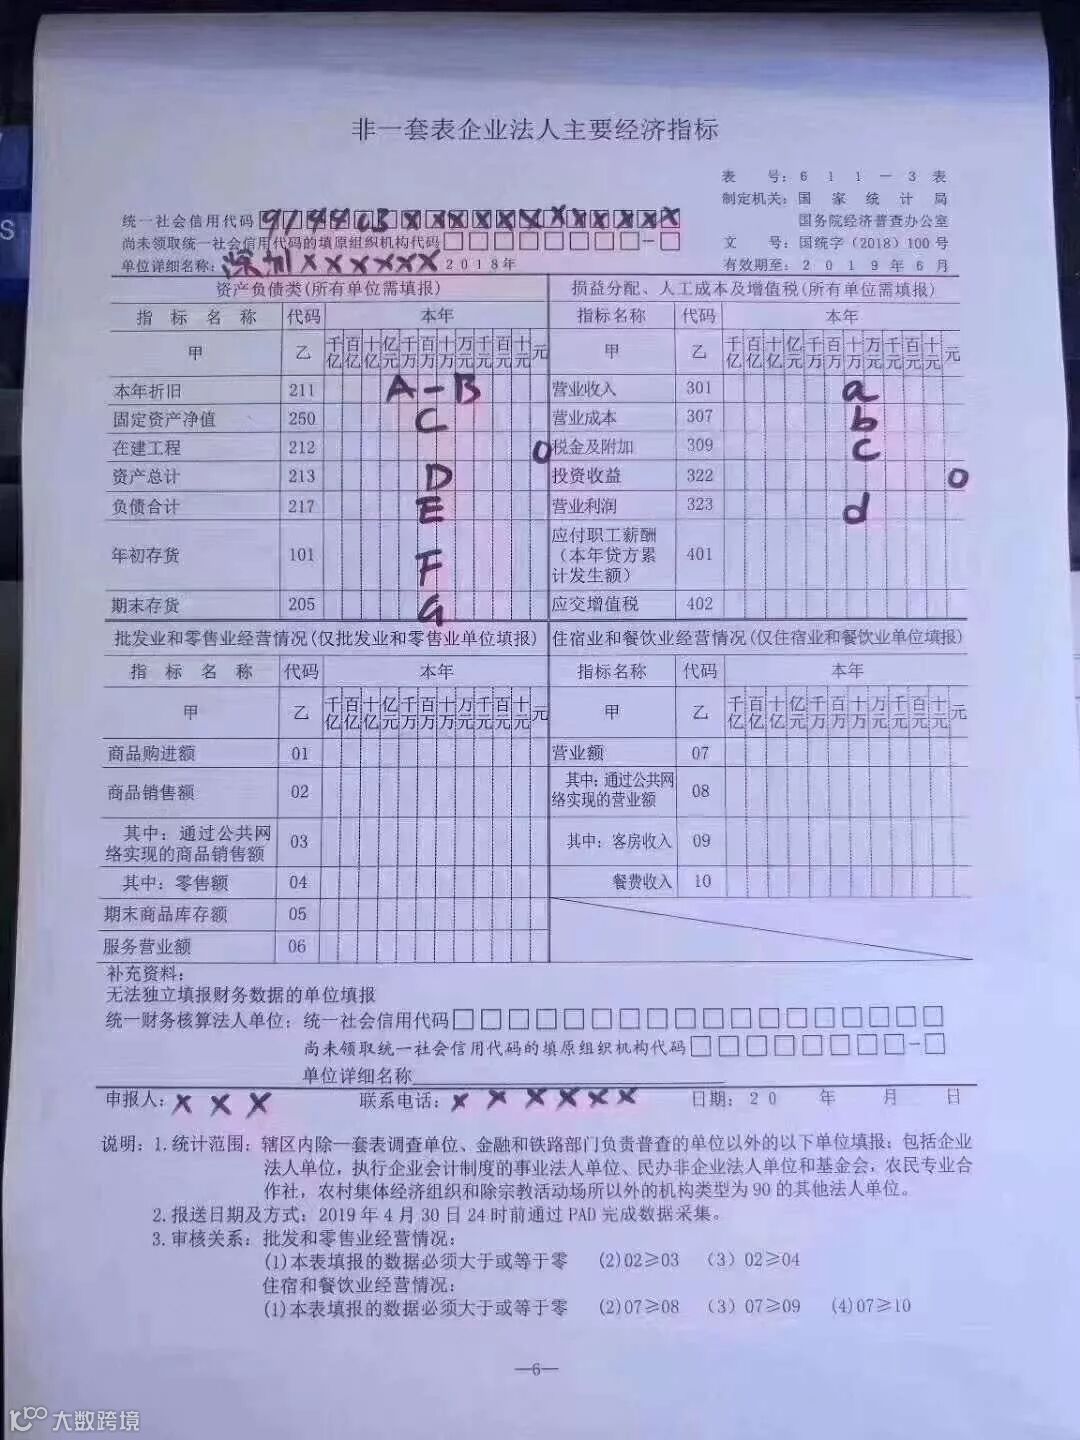 非一套表企业法人主要经济指标
表 号：611-3表
制定机关：国家统计局
统一社会信用代码 914403XXXXXXXXXXXX
国务院经济普查办公室
尚未领取统一社会信用代码的填原组织机构代码□□□□□□□□-□
文 号：国统字（2018）100号
单位详细名称：深圳XXXXXX 2018年
有效期至：2019年6月
资产负债类(所有单位需填报) 损益分配、人工成本及增值税(所有单位需填报)
指标名称 代码 本年 指标名称 代码 本年
甲 乙 千亿 百亿 十亿 亿元 千万 百万 十万 万元 千元 百元 十元 元 甲 乙 千亿 百亿 十亿 亿元 千万 百万 十万 万元 千元 百元 十元 元
本年折旧 211 A-B 营业收入 301 a
固定资产净值 250 C 营业成本 307 b
在建工程 212 0 税金及附加 309 C
资产总计 213 D 投资收益 322 0
负债合计 217 E 营业利润 323 d
年初存货 101 F 应付职工薪酬（本年贷方累计发生额） 401
期末存货 205 G 应交增值税 402
批发业和零售业经营情况(仅批发业和零售业单位填报) 住宿业和餐饮业经营情况(仅住宿业和餐饮业单位填报)
指标名称 代码 本年 指标名称 代码 本年
甲 乙 千亿 百亿 十亿 亿元 千万 百万 十万 万元 千元 百元 十元 元 甲 乙 千亿 百亿 十亿 亿元 千万 百万 十万 万元 千元 百元 十元 元
商品购进额 01 营业额 07
商品销售额 02 其中：通过公共网络实现的营业额 08
其中：通过公共网络实现的商品销售额 03 其中：客房收入 09
其中：零售额 04 餐费收入 10
期末商品库存额 05
服务营业额 06
补充资料：
无法独立填报财务数据的单位填报
统一财务核算法人单位：统一社会信用代码□□□□□□□□□□□□□□□□□□
尚未领取统一社会信用代码的填原组织机构代码□□□□□□□□-□
单位详细名称
申报人：XXX 联系电话：XXXXXX 日期：20 年 月 日
说明：1.统计范围：辖区内除一套表调查单位、金融和铁路部门负责普查的单位以外的以下单位填报：包括企业
法人单位，执行企业会计制度的事业法人单位、民办非企业法人单位和基金会，农民专业合
作社，农村集体经济组织和除宗教活动场所以外的机构类型为90的其他法人单位。
2.报送日期及方式：2019年4月30日24时前通过PAD完成数据采集。
3.审核关系：批发和零售业经营情况：
(1)本表填报的数据必须大于或等于零 (2)02≥03 （3）02≥04
住宿和餐饮业经营情况：
(1)本表填报的数据必须大于或等于零 (2)07≥08 （3）07≥09 (4)07≥10
—6—
大数跨境